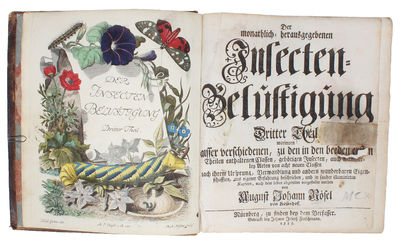 DER
INSECTEN
BELUSTIGUNG
Dritter Theil
Der
monathlich-herausgegebenen
Insecten-
Belustigung
Dritter Theil
worinnen
ausser verschiedenen, zu den in den beeden
Theilen enthaltenen Classen, gehörigen Insecten, auch
Arten von acht neuen Classen
nach ihrem Ursprung, Verwandlung und andern wunderbaren Eigen-
schafften, aus eigener Erfahrung beschrieben, und in sauber illuminirten
Kupfern, nach dem Leben abgebildet vorgestellet werden
von
August Johann Rösel
von Rosenhof.
Nürnberg, zu finden bey dem Verfasser.
Gedruckt bey Johann Joseph Fleischmann.